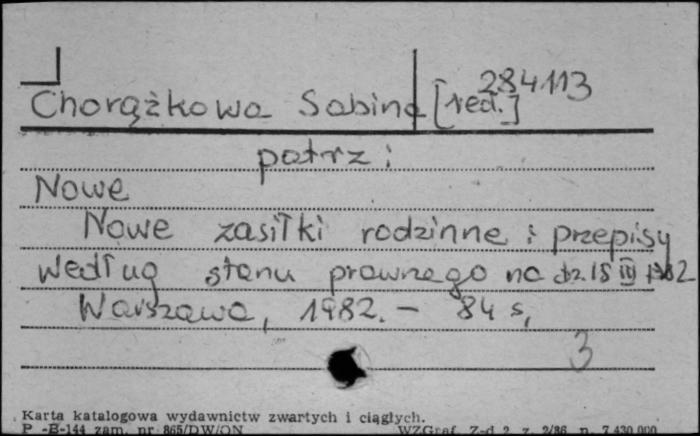 284113
Chorążkowa Sabina [red.]
patrz:
Nowe
Nowe zasiłki rodzinne : przepisy
według stanu prawnego na dz. 15 IV 1982
Warszawa, 1982. - 84 s,
3
Karta katalogowa wydawnictw zwartych i ciągłych.
P -B-144 zam. nr 865/DW/ON WZGraf. Z-d 2 z. 2/86 n. 7.430.000